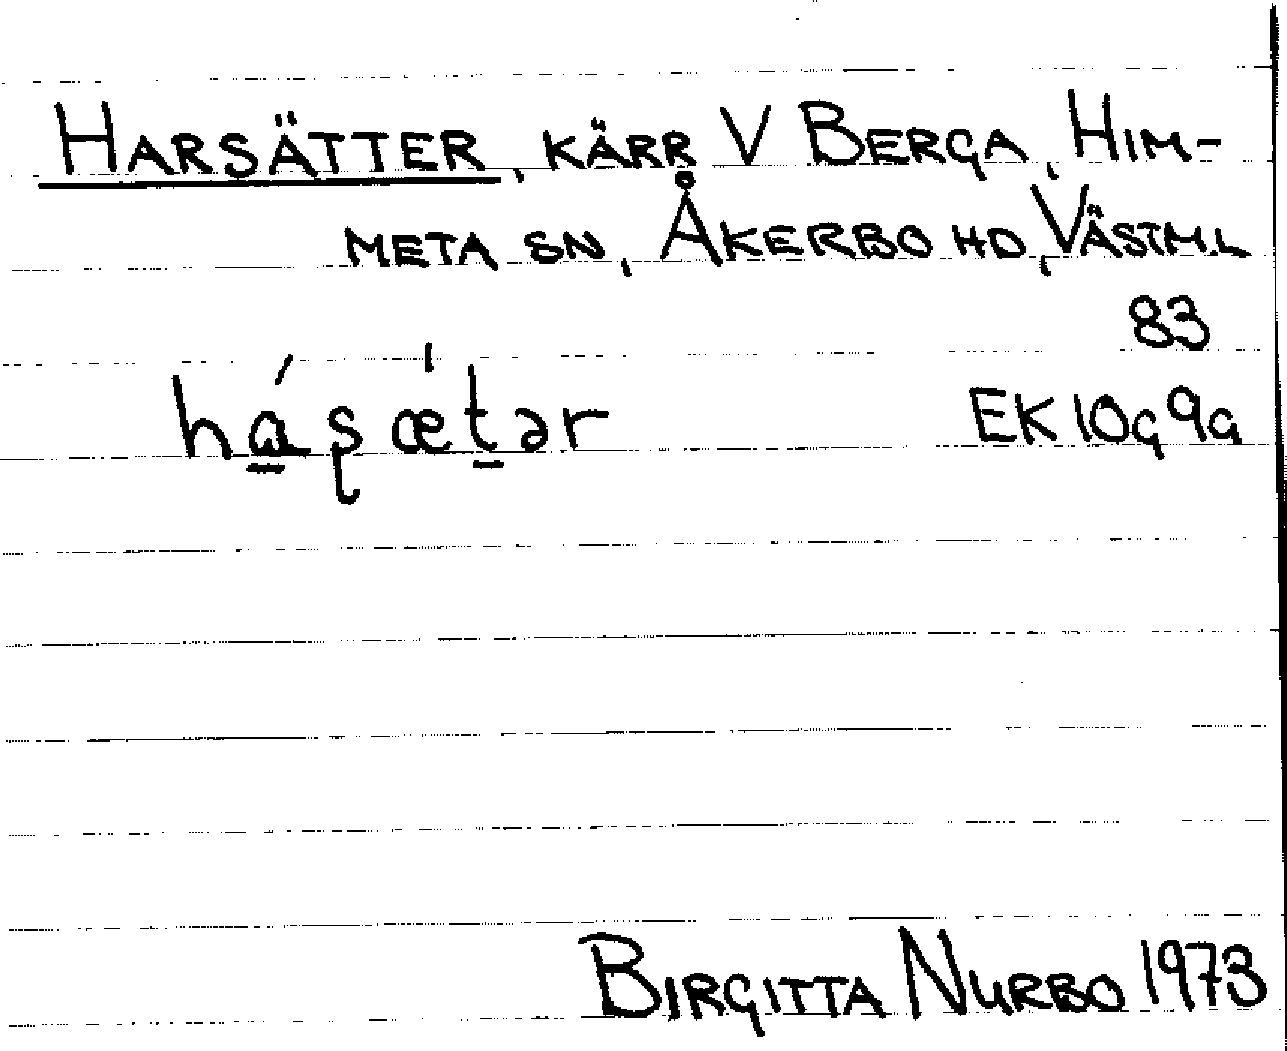 HARSÄTTER, KÄRR V BERGA, HIM-
META SN, ÅKERBO HD, VÄSTM.L
83
há̱ʂæ̍ṯər
EK 10g 9a
BIRGITTA NURBO 1973